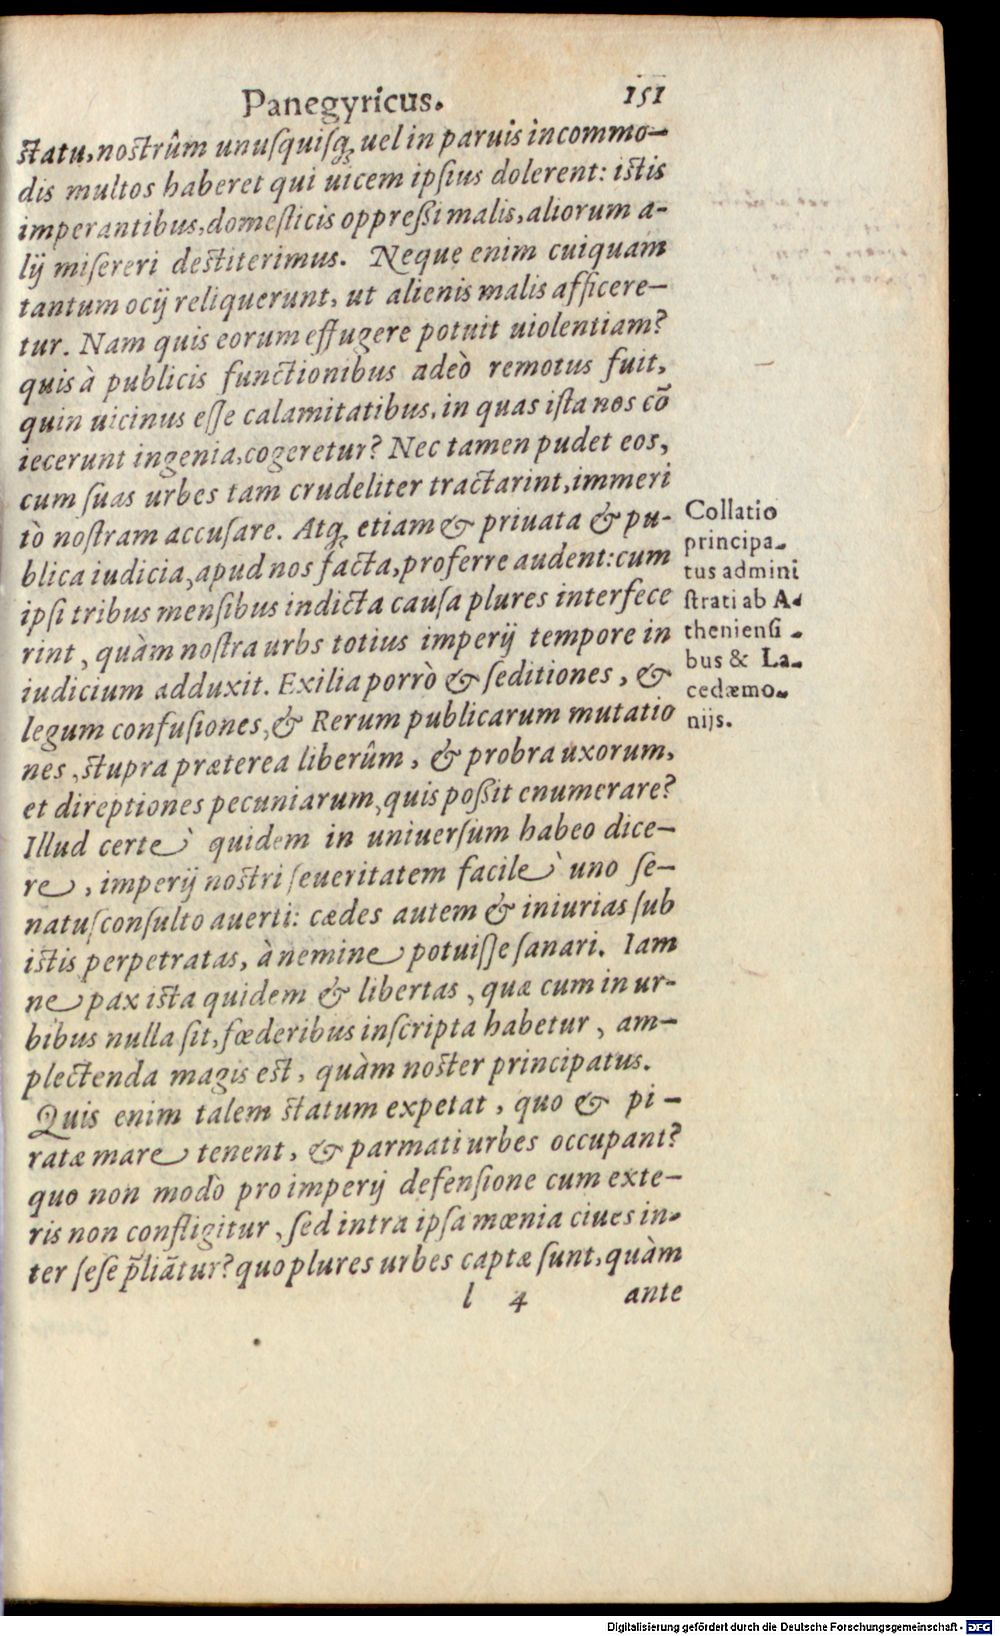 Panegyricus. 151
ſtatu, noſtrûm unuſquiſq; uel in paruis incommo-
dis multos haberet qui uicem ipſius dolerent: iſtis
imperantibus, domeſticis oppreßi malis, aliorum a-
lij miſereri deſtiterimus. Neque enim cuiquam
tantum ocij reliquerunt, ut alienis malis afficere-
tur. Nam quis eorum effugere potuit uiolentiam?
quis à publicis functionibus adeò remotus fuit,
quin uicinus eſſe calamitatibus, in quas iſta nos cõ
iecerunt ingenia, cogeretur? Nec tamen pudet eos,
cum ſuas urbes tam crudeliter tractarint, immeri
tò noſtram accuſare. Atq; etiam & priuata & pu-
blica iudicia, apud nos facta, proferre audent: cum
ipſi tribus menſibus indicta cauſa plures interfece
rint, quàm noſtra urbs totius imperij tempore in
iudicium adduxit. Exilia porrò & ſeditiones, &
legum confuſiones, & Rerum publicarum mutatio
nes, ſtupra præterea liberûm, & probra uxorum,
et direptiones pecuniarum, quis poßit enumerare?
Illud certè quidem in uniuerſum habeo dice-
re, imperij noſtri ſeueritatem facilè uno ſe-
natuſconſulto auerti: cædes autem & iniurias ſub
iſtis perpetratas, à nemine potuiſſe ſanari. Iam
ne pax iſta quidem & libertas, quæ cum in ur-
bibus nulla ſit, fœderibus inſcripta habetur, am-
plectenda magis eſt, quàm noſter principatus.
Quis enim talem ſtatum expetat, quo & pi-
ratæ mare tenent, & parmati urbes occupant?
quo non modò pro imperij defenſione cum exte-
ris non confligitur, ſed intra ipſa mœnia ciues in-
ter ſeſe p̃liãtur? quo plures urbes captæ ſunt, quàm
l 4 ante
Collatio
principa-
tus admini
ſtrati ab A-
thenienſi-
bus & La-
cedæmo-
nijs.
Digitalisierung gefördert durch die Deutsche Forschungsgemeinschaft - DFG